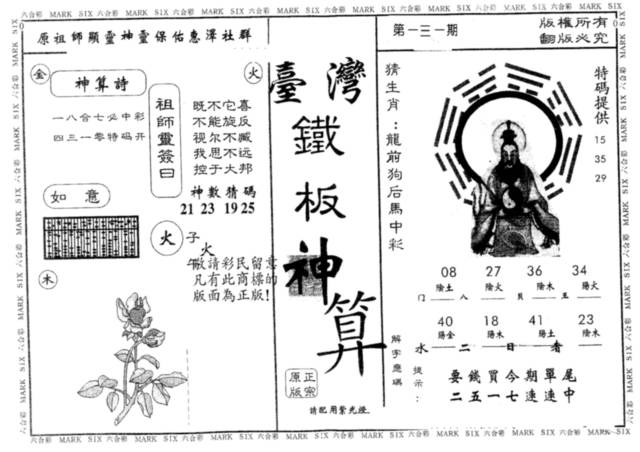 六合彩 MARK SIX 六合彩 MARK SIX 六合彩 MARK SIX 六合彩 MARK SIX 六合彩 MARK SIX 六合彩 MARK SIX 六合彩
原祖師顯靈神靈保佑惠澤社群
第一三一期
版權所有
翻版必究
金
神算詩
火
一八合七必中彩
四三一零特码开
祖師靈簽曰
既不它喜
不能旋反
视尔不臧
我思不远
控于大邦
神數猜碼
21 23 19 25
如意
火
子
火
午
敬請彩民留意
凡有此商標的
版面為正版!
木
臺灣
鐵板神算
正宗
原版
請配用紫光燈
猜生肖:龍前狗后馬中彩
特码提供
15
35
29
08 27 36 34
陰土 陰火 陰木 陽火
门 八 貝 五
40 18 41 23
陽金 陽木 陽土 陰木
水 二 日 看
解字應碼
提示:
要錢買今期單尾
二五一七連連中
六合彩 MARK SIX 六合彩 MARK SIX 六合彩 MARK SIX 六合彩 MARK SIX 六合彩 MARK SIX 六合彩 MARK SIX 六合彩